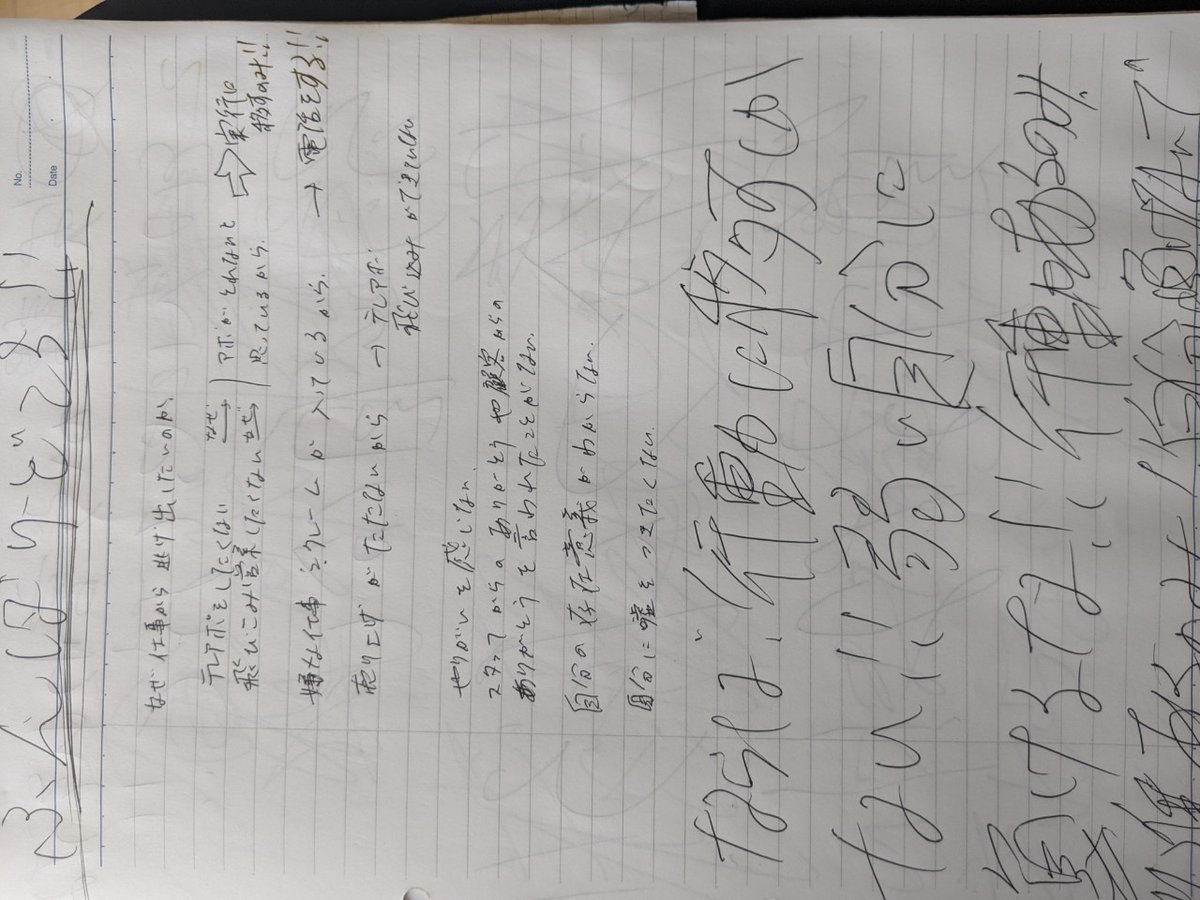 No.
Date
ふんばりどころ!!
なぜ仕事から逃げ出したいのか、
テレアポをしたくない なぜ→ アポがとれないと ⇨ 実行に
飛びこみ営業したくない なぜ→ 思っているから。 移すのみ!!
嫌な仕事 クレームが入っているから。→ 電話をする!!
売り上げがたたないから → テレアポ・
飛び込みができていない
やりがいを感じない。
スタッフからのありがとうや顧客からの
ありがとうを言われたことがない。
自分の存在意義がわからない。
自分に嘘をつきたくない。
行動し
ない!! 弱い自分に
負けるな!! 行動あるのみ.